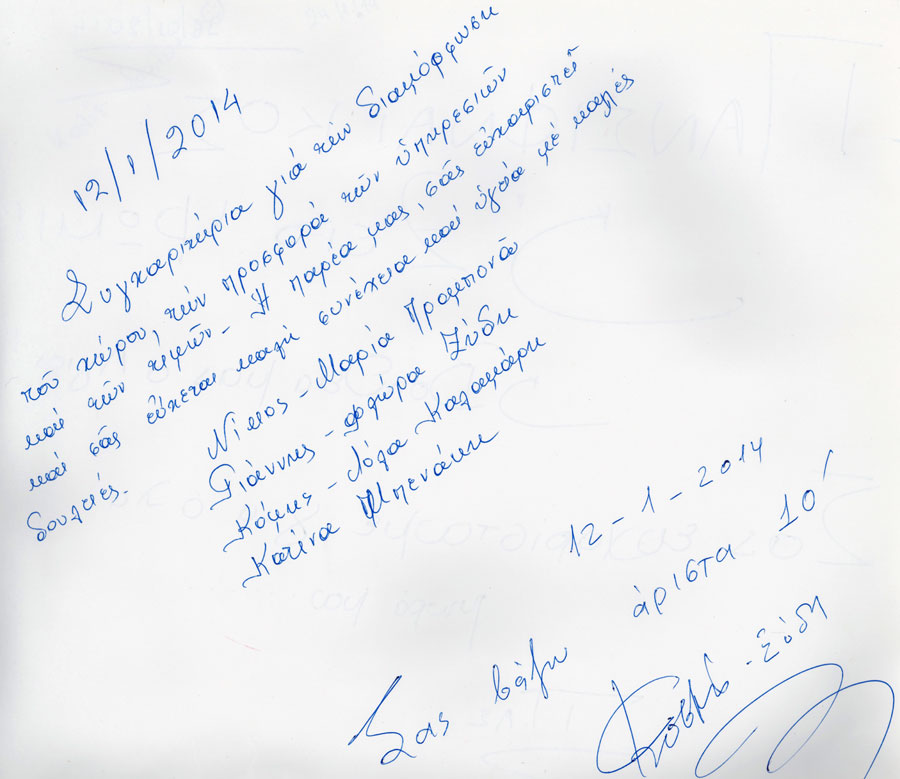 12/1/2014
Συγχαρητήρια γιά τήν διαμόρφωση
τοῦ χώρου, τήν προσφορά τῶν ὑπηρεσιῶν
καί τῶν τιμῶν - Ἡ παρέα μας, σᾶς εὐχαριστεῖ
καί σᾶς εὔχεται καλή συνέχεια καί ὑγεία μέ καλές
δουλειές.
Νίκος - Μαρία
Γιάννης - Φλώρα Ξύδη
Κόμης - Λόλα Καλαμάρη
Κατίνα Μπενάκη
12-1-2014
Σας βάζω άριστα 10
Ξύδη